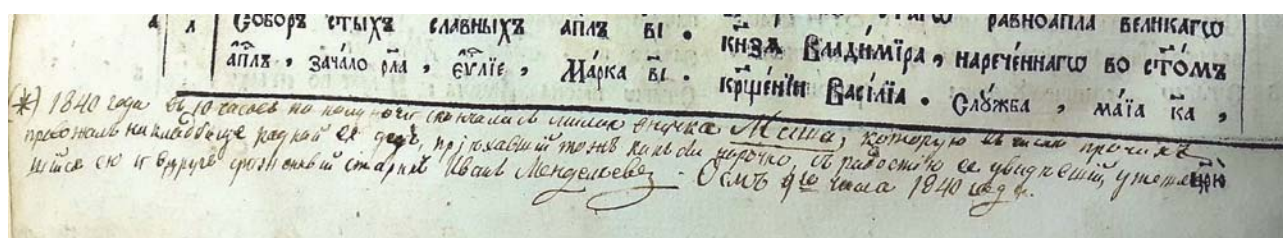 а҃ л҃ Собо́ръ ст҃ы́хъ сла́вныхъ ап҃лъ в҃і .
ап҃лъ , зача́ло рл҃а , є҆ѵⷢ҇лїе , Ма́рка в҃і .
равноап҃ла вели́кагѡ
кн҃зѧ Влади́мїра , нарече́ннагѡ во ст҃о́мъ
кр҃ще́нїи Васі́лїа . Слу́жба , ма́їа к҃а ,
(*) 1840 года въ 10 часовъ по полуночи скончалась милая внучка Миша, которую въ числѣ прочихъ
провожалъ на кладбище родной ея дедъ, пріехавшій тоже какъ бы нарочно, съ радостію ее увидевшій,
ею и вдругъ старикъ Иванъ Менделеевъ - 9го числа 1840 года.